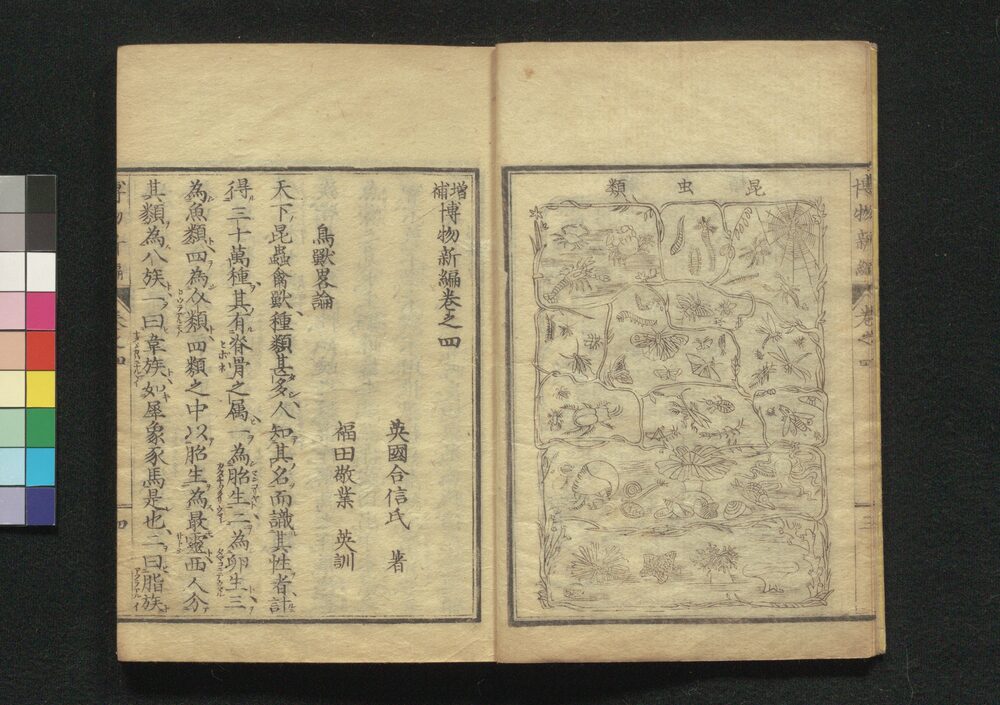 昆虫類
博物新編
増補博物新編巻之四
英國合信氏 著
福田敬業 英訓
鳥獸畧論
天下昆蟲禽獸種類甚多人知其名而識其性者計
得三十萬種其有脊骨之属一為胎生二為卵生三
為魚類四為介類四類之中以胎生為最靈西人分
其類為八族一曰韋族如犀象豕馬是也二曰脂族